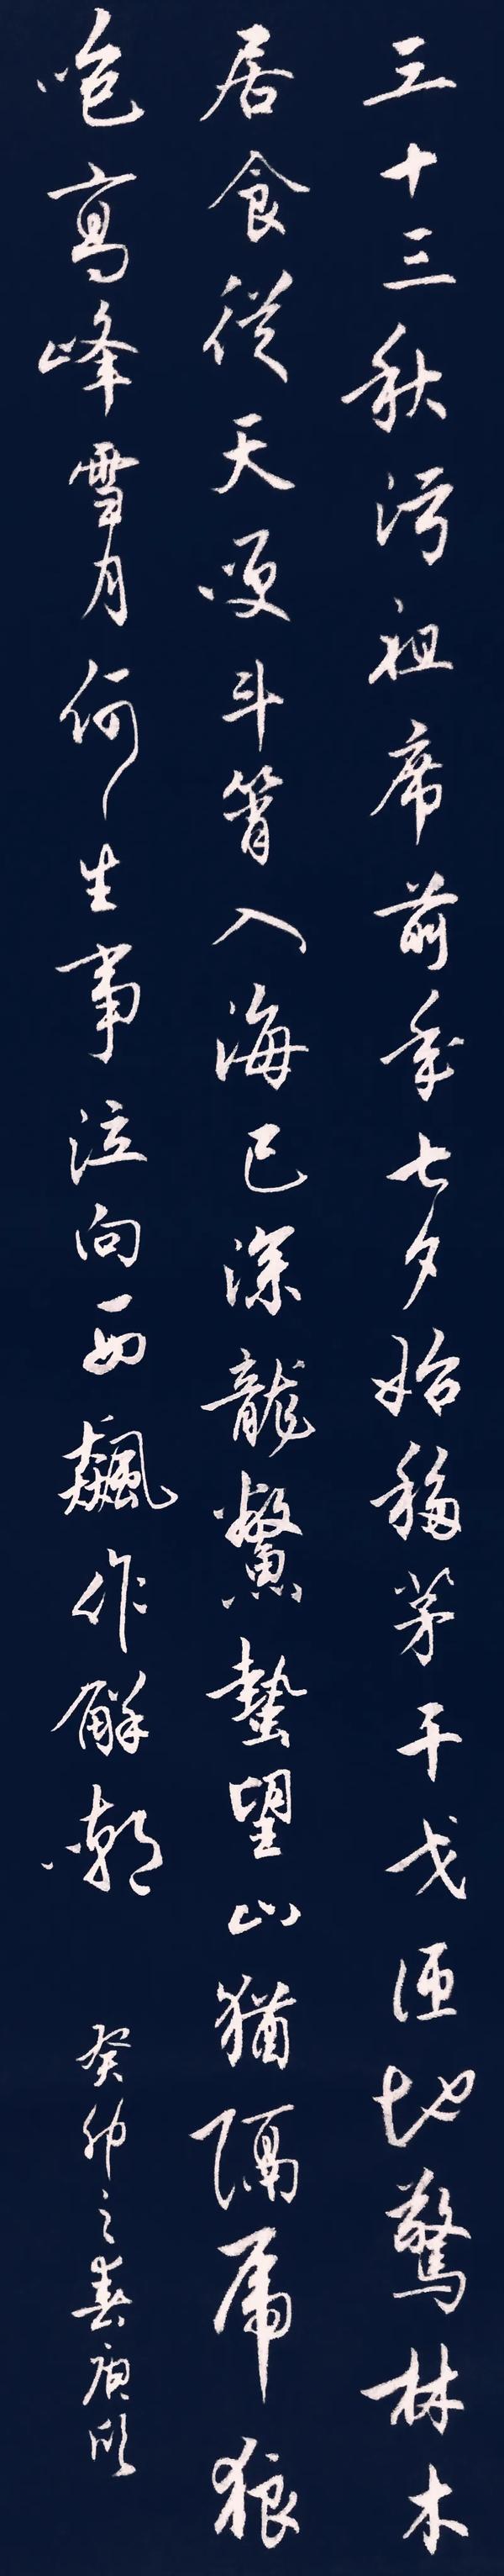 三十三秋污祖席前年七夕始移茅干戈匝地驚林木
居食從天哽斗筲入海已深龍鱉蟄望山猶隔虎狼
咆高峰雪月何生事泣向西飆作解嘲
癸卯之春